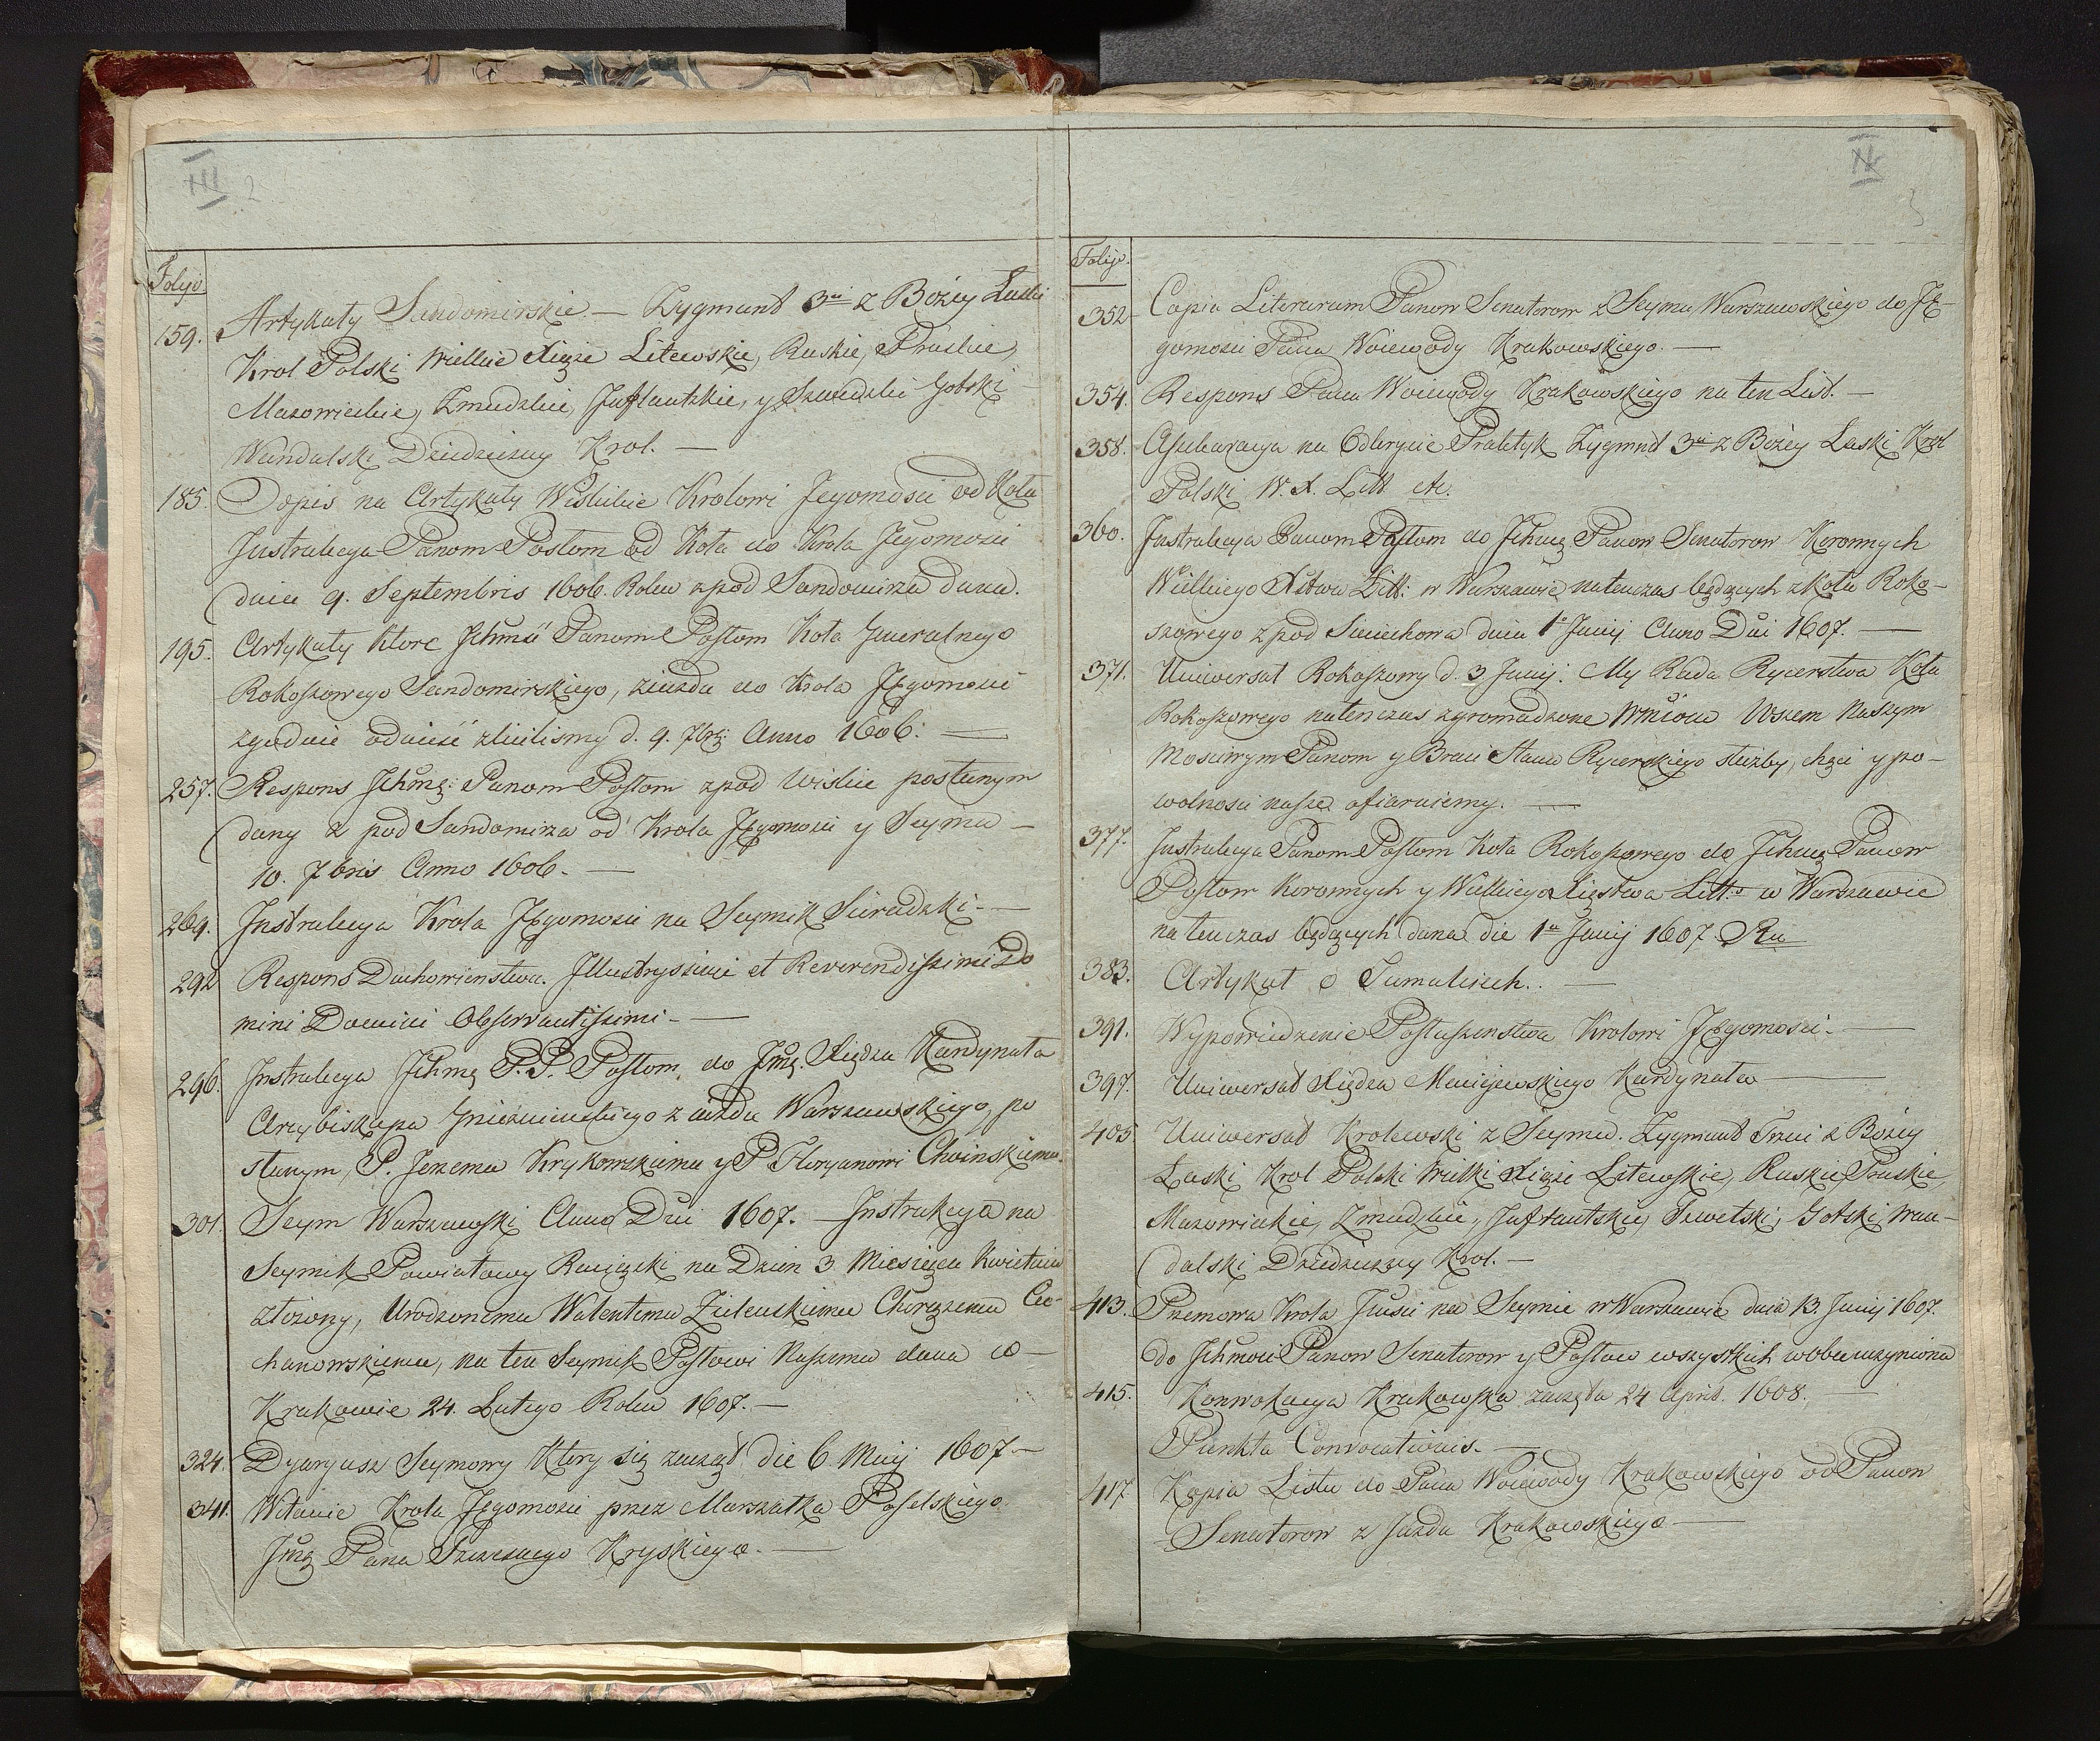 III 2
Folyo.
159. Artykuły Sandomirskie — Zygmunt 3ci z Bożey Łaski
Krol Polski Wielkie Xiąże Litewskie, Ruskie, Pruskie,
Mazowieckie, Zmudzkie, Juflantskie, y Szwedzki Gotski
Wandalski Dziedziczny Krol. —
185. Dopis na Artykuły Wislickie Krolowi Jegomości od Koła
Instrukcya Panom Posłom od Koła do Krola Jegomości
dnia 9. Septembris 1606. Roku zpod Sandomirza dana.
195. Artykuły Ktore Jchmć Panom Posłom Koła Generalnego
Rokoszowego Sandomirskiego, ziazdu do Krola JEgomości
zgodnie odnieść zlicilismy d. 9. 7br: Anno 1606: —
257. Respons Jchmę: Panom Posłom zpod Wislice posłanym
dany z pod Sandomirza od Krola JEgomości y Seymu —
10. 7bris Anno 1606. —
269. Instrukcya Krola JEgomości na Seymik Sieradzki —
292 Respons Duchowienstwa. Jllustryssimi et Reverendissimi Do
mini Domini Obserwantissimi — —
296. Instrukcya Jchmę P.P. Posłom, do Jmę. Xiędza Kardynała
Arcybiskupa Gnieznienskiego z ziazdu Warszawskiego, po
słanym, P. Jerzemu Krykowskiemu y P Floryanowi Choinskiemu.
301. Seym Warszawski Anno Dni 1607. — Instrukcya na
Seymik Powiatowy Raciązki na Dzien 3 Miesięca Kwietnia
złożony, Urodzonemu Walentemu Zielenskiemu Chorążemu Cie-
chanowskiemu, na ten Seymik Posłowi Naszemu dana w —
Krakowie 24. Lutego Roku 1607. —
324. Dyaryusz Seymowy Ktory się zaczął die 6 Maij 1607 —
341. Witanie Krola JEgomości przez Marszałka Poselskiego
Jmę Pana Szczesnego Kryskiego. —
IV
3
Folijo.
352 Copia Literarum Panow Senatorow z Seymu Warszawskiego do JE-
gomości Pana Woiewody Krakowskiego. —
354. Respons Pana Woiewody Krakowskiego na ten List. —
358. Assekuracya na Odkrycie Praktyk Zygmnt 3ci z Bożey Łaski Krol
Polski W. X. Litt etc.
360. Instrukcya Panom Posłom do Jchmę Panow Senatorow Koronnych
Wielkiego Xstwa Litt: w Warszawie natenczas będących z Koła Roko-
szowego z pod Sieciechowa dnia 1o Junij Anno Dni 1607. —
371. Uniwersał Rokoszowy d. 3 Junij: My Rada Rycerstwa Koła
Rokoszowego natenczas zgromadzone Wmiowa Wszem Naszym
Mosciwym Panom y Braci Stanu Rycerskiego służby, chęci y po-
wolnosci nasze ofiaruiemy. —
377. Instrukcya Panom Posłom Koła Rokoszowego do Jchmę Panow
Posłow Koronnych y Wielkiego Xięstwa Litt.o w Warszawie
na tenczas będących dana die 1a Junij 1607 Ru
383. Artykuł o Tumultach. . —
391. Wypowiedzenie Posłuszenstwa Krolowi JEgomosci. —
397. Uniwersał Xiędza Maciejewskiego Kardynała —
405 Uniwersał Krolewski z Seymu. Zygmunt Trzeci z Bożey
Łaski Krol Polski Wielki Xiąże Litewskie, Ruskie, Pruskie,
Mazowieckie, Zmudzkie, Juflantskie, Szwetski, Gotski, Wan-
dalski Dziedziczny Krol. —
413. Przemowa Krola Jmści na Seymie w Warszawie dnia 13. Junij 1607.
do Jchmości Panow Senatorow y Posłow wszystkich w Obec uczyniona
415. Konwokacya Krakowska zaczęta 24 Apris. 1608. —
Punkta Convocationis. —
417 Kopia Listu do Pana Woiewody Krakowskiego od Panow
Senatorow z Jazdu Krakowskiego —